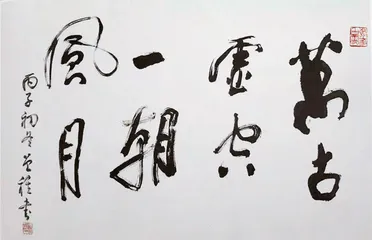 萬古
虛空
一朝
風月
丙子初冬書